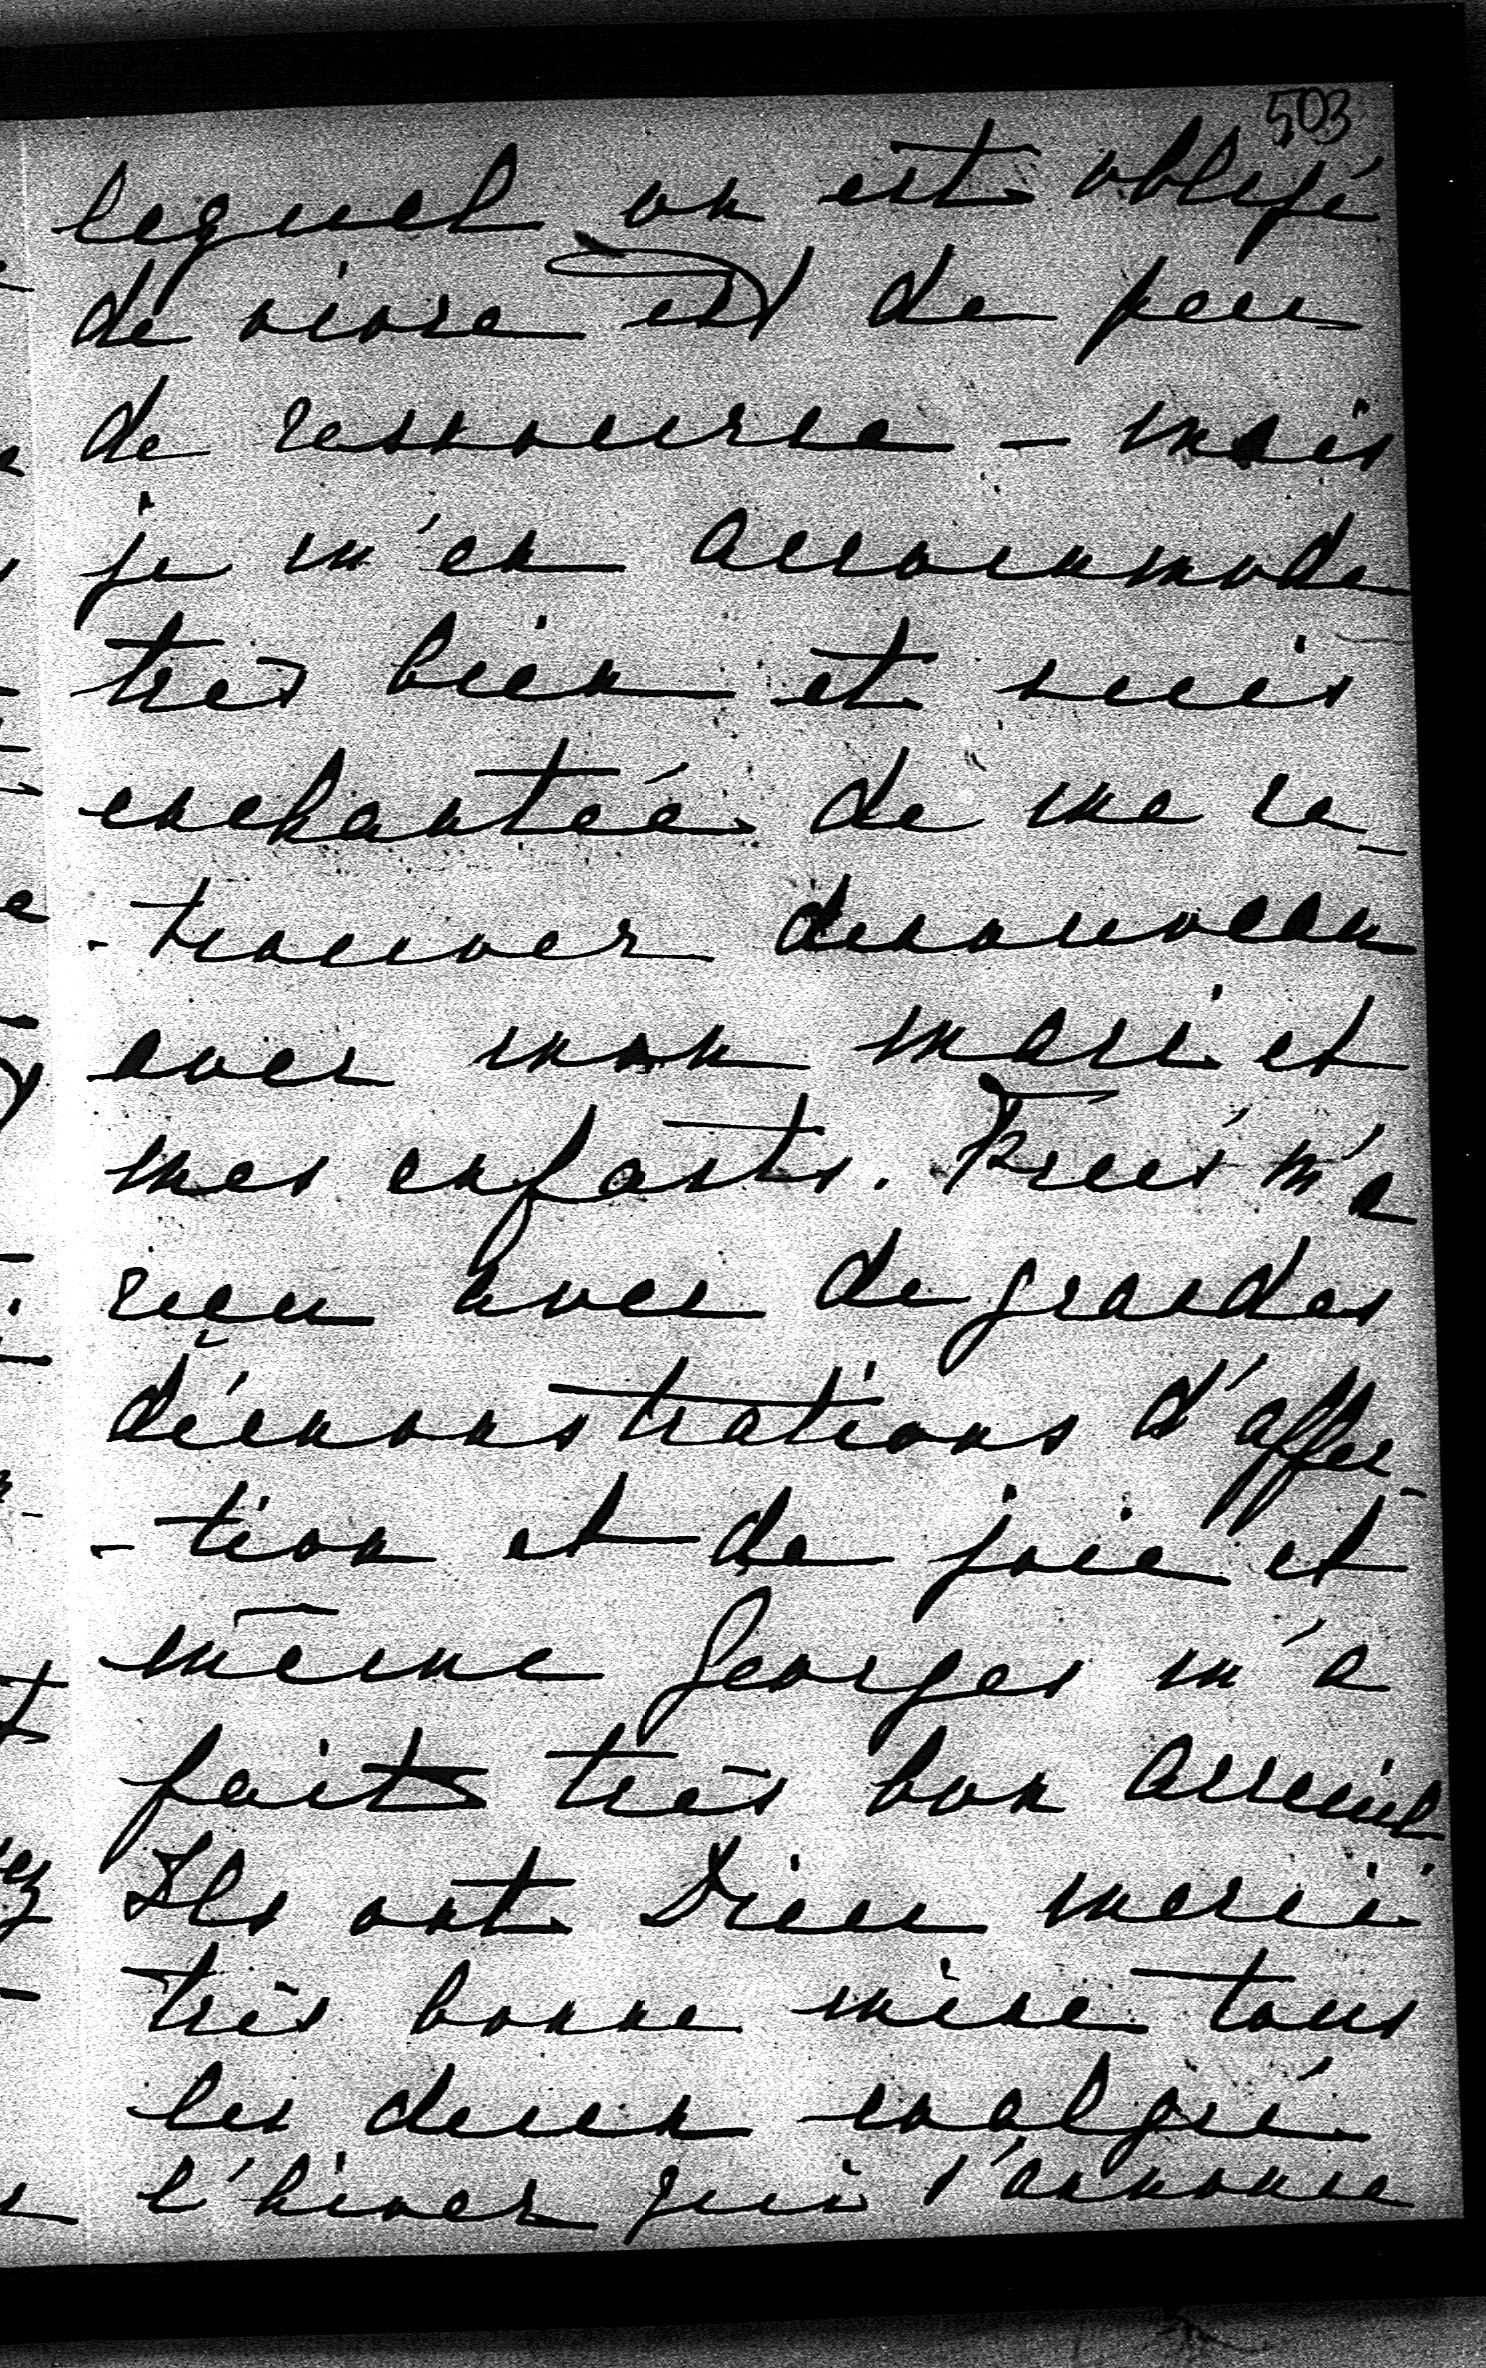 503
lequel on est obligé
de vivre est de peu
de ressource – mais
je m'en accommode
très bien et suis
enchantée de me re-
-trouver denouveau
avec mon mari et
mes enfants. m'a
reçu avec de grandes
démonstrations d'affec-
-tion et de joie et
même Georges m'a
fait très bon accueil
Ils ont Dieu merci
très bonne mine tous
les deux malgré
l'hiver qui s'annonce